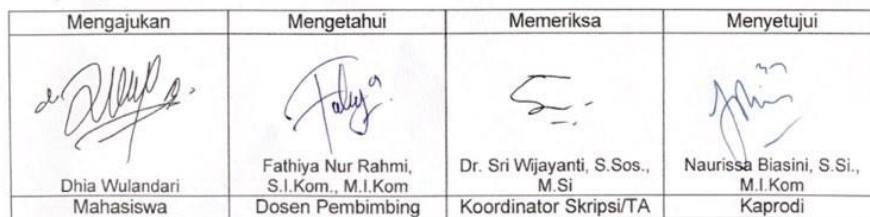 Mengajukan Mengetahui Memeriksa Menyetujui
Dhia Wulandari
Fathiya Nur Rahmi,
S.I.Kom., M.I.Kom
Dr. Sri Wijayanti, S.Sos.,
M.Si
Naurissa Biasini, S.Si.,
M.I.Kom
Mahasiswa Dosen Pembimbing Koordinator Skripsi/TA Kaprodi